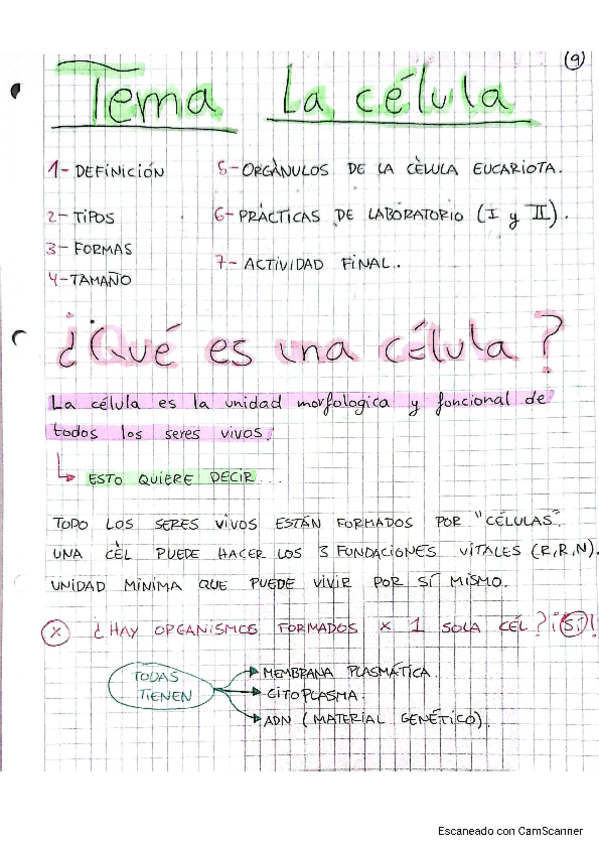 (9)
Tema La célula
1- DEFINICIÓN
2- TIPOS
3- FORMAS
4- TAMAÑO
5- ORGÀNULOS DE LA CÈLULA EUCARIOTA.
6- PRÁCTICAS DE LABORATORIO (I y II).
7- ACTIVIDAD FINAL.
¿Qué es una célula?
La célula es la unidad morfologica y funcional de
todos los seres vivos.
ESTO QUIERE DECIR...
TODO LOS SERES VIVOS ESTÁN FORMADOS POR "CÉLULAS".
UNA CÈL PUEDE HACER LOS 3 FUNDACIONES VITALES (R,R,N).
UNIDAD MINIMA QUE PUEDE VIVIR POR SÍ MISMO.
X ¿HAY ORGANISMOS FORMADOS X 1 SOLA CÉL? ¡SÍ!
TODAS
TIENEN
MEMBRANA PLASMÁTICA.
CITOPLASMA.
ADN (MATERIAL GENÉTICO).
Escaneado con CamScanner